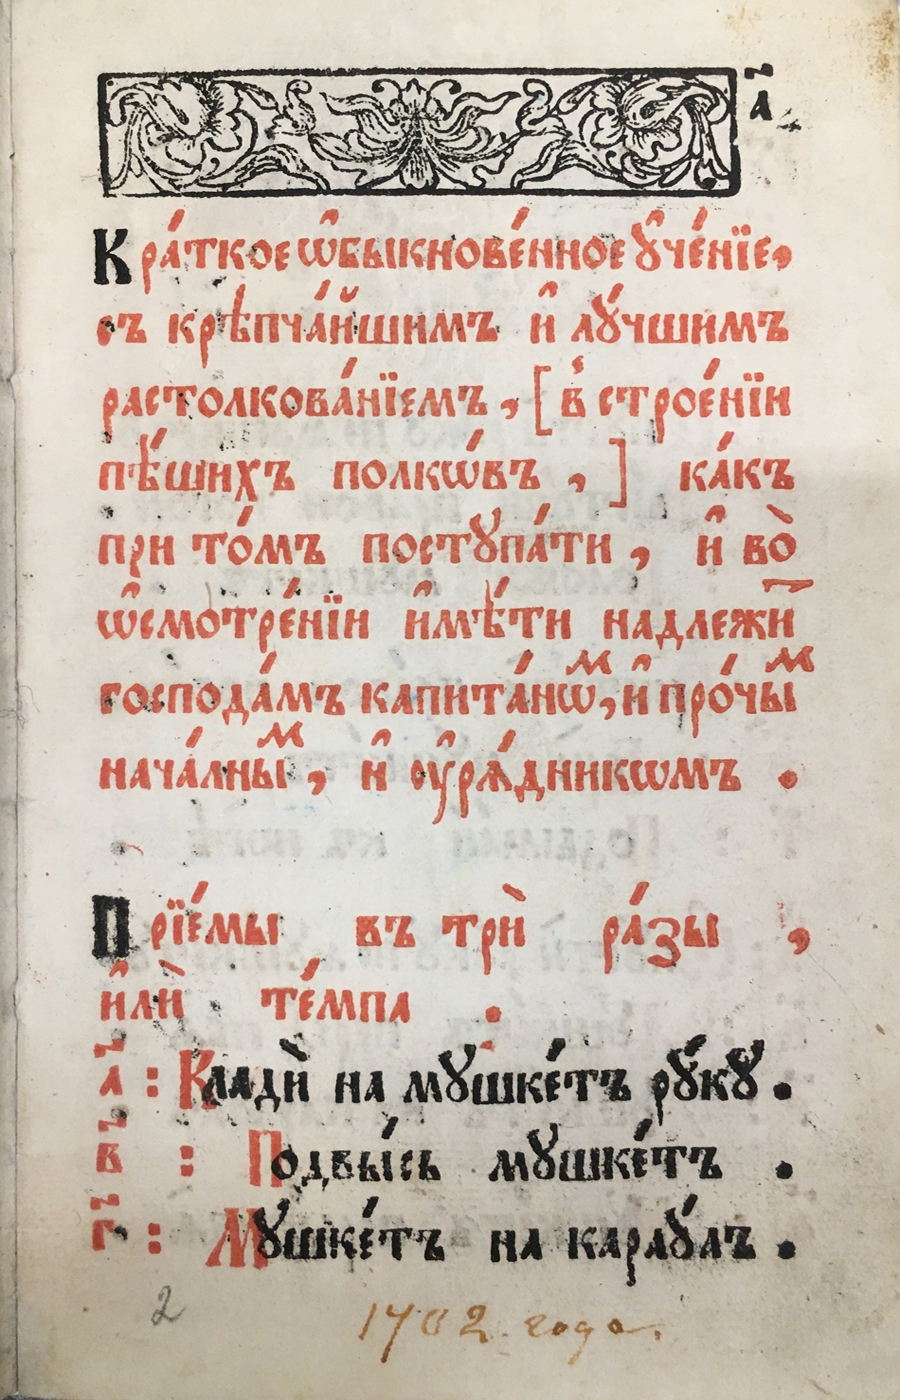 а҃
Кра́ткое ѡ҆быкнове́нное ᲂу҆че́нїе,
съ крѣпча́йшимъ и҆ лꙋ́чшимъ
растолкова́нїемъ, [в̾ строе́нїи
пѣ́шихъ полкѡ́въ,] ка́къ
при то́мъ постꙋпа́ти, и҆ во̀
ѡ҆смотре́нїи и҆мѣ́ти надлежи҃
господа́мъ капита́нѡⷨ, и҆ про́чыⷨ
нача́лныⷨ, и҆ ᲂу҆рѧ́дникѡмъ .
Прїе́мы въ трѝ ра́зы ,
и҆лѝ те́мпа .
а҃ : Кладѝ на мꙋшке́тъ рꙋ́кꙋ .
в҃ : Подвы́сь мꙋшке́тъ .
г҃ : Мꙋшке́тъ на караꙋ́лъ .
2 1702. года.